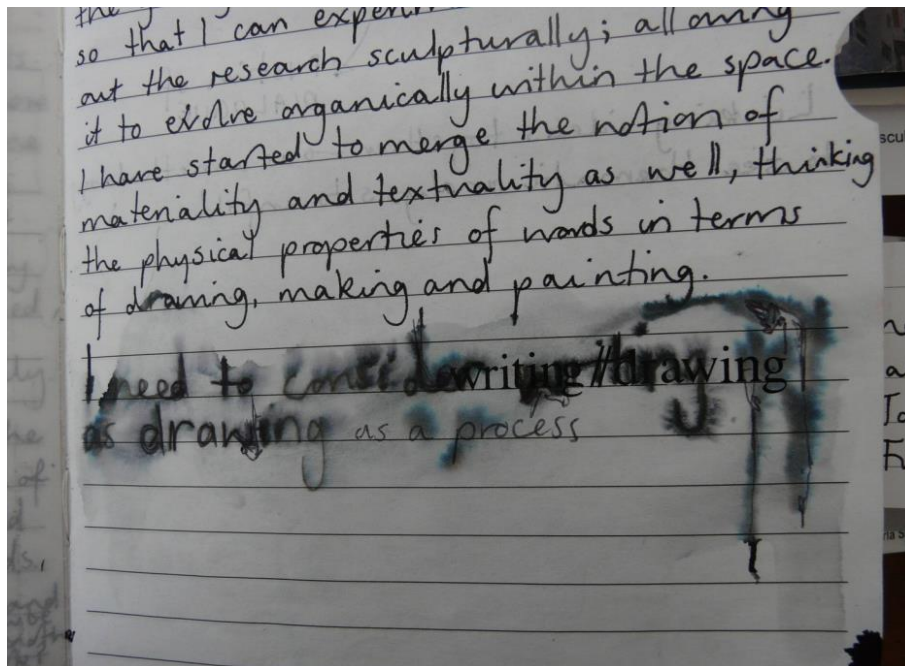 so that I can
out the research sculpturally; allowing
it to evolve organically within the space.
I have started to merge the notion of
materiality and textuality as well, thinking
the physical properties of words in terms
of drawing, making and painting.
I need to consider writing//drawing
as drawing as a process